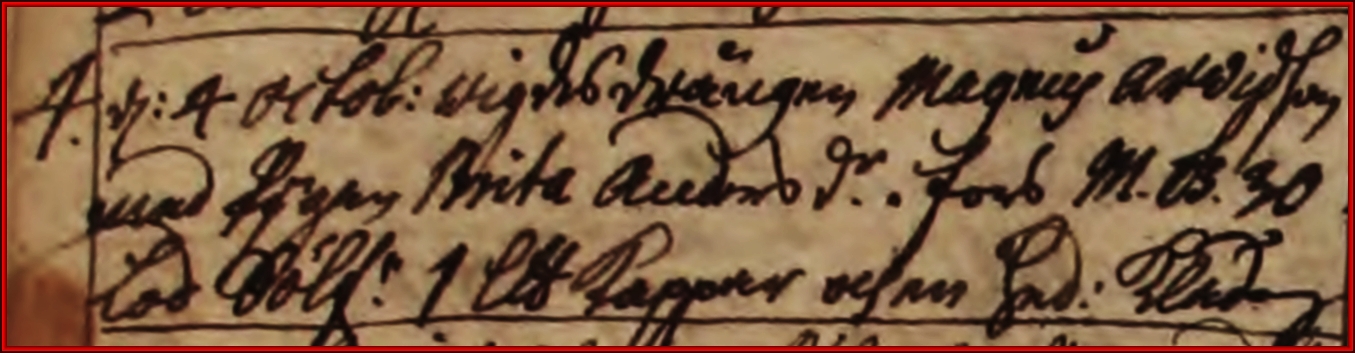 4. d: 4 octob: wigdes drängen Magnus Arvidsson
med Pigan Brita Anders dr. . förd M. B. 30
lod Sölf: 1 L℔ Kopper och en